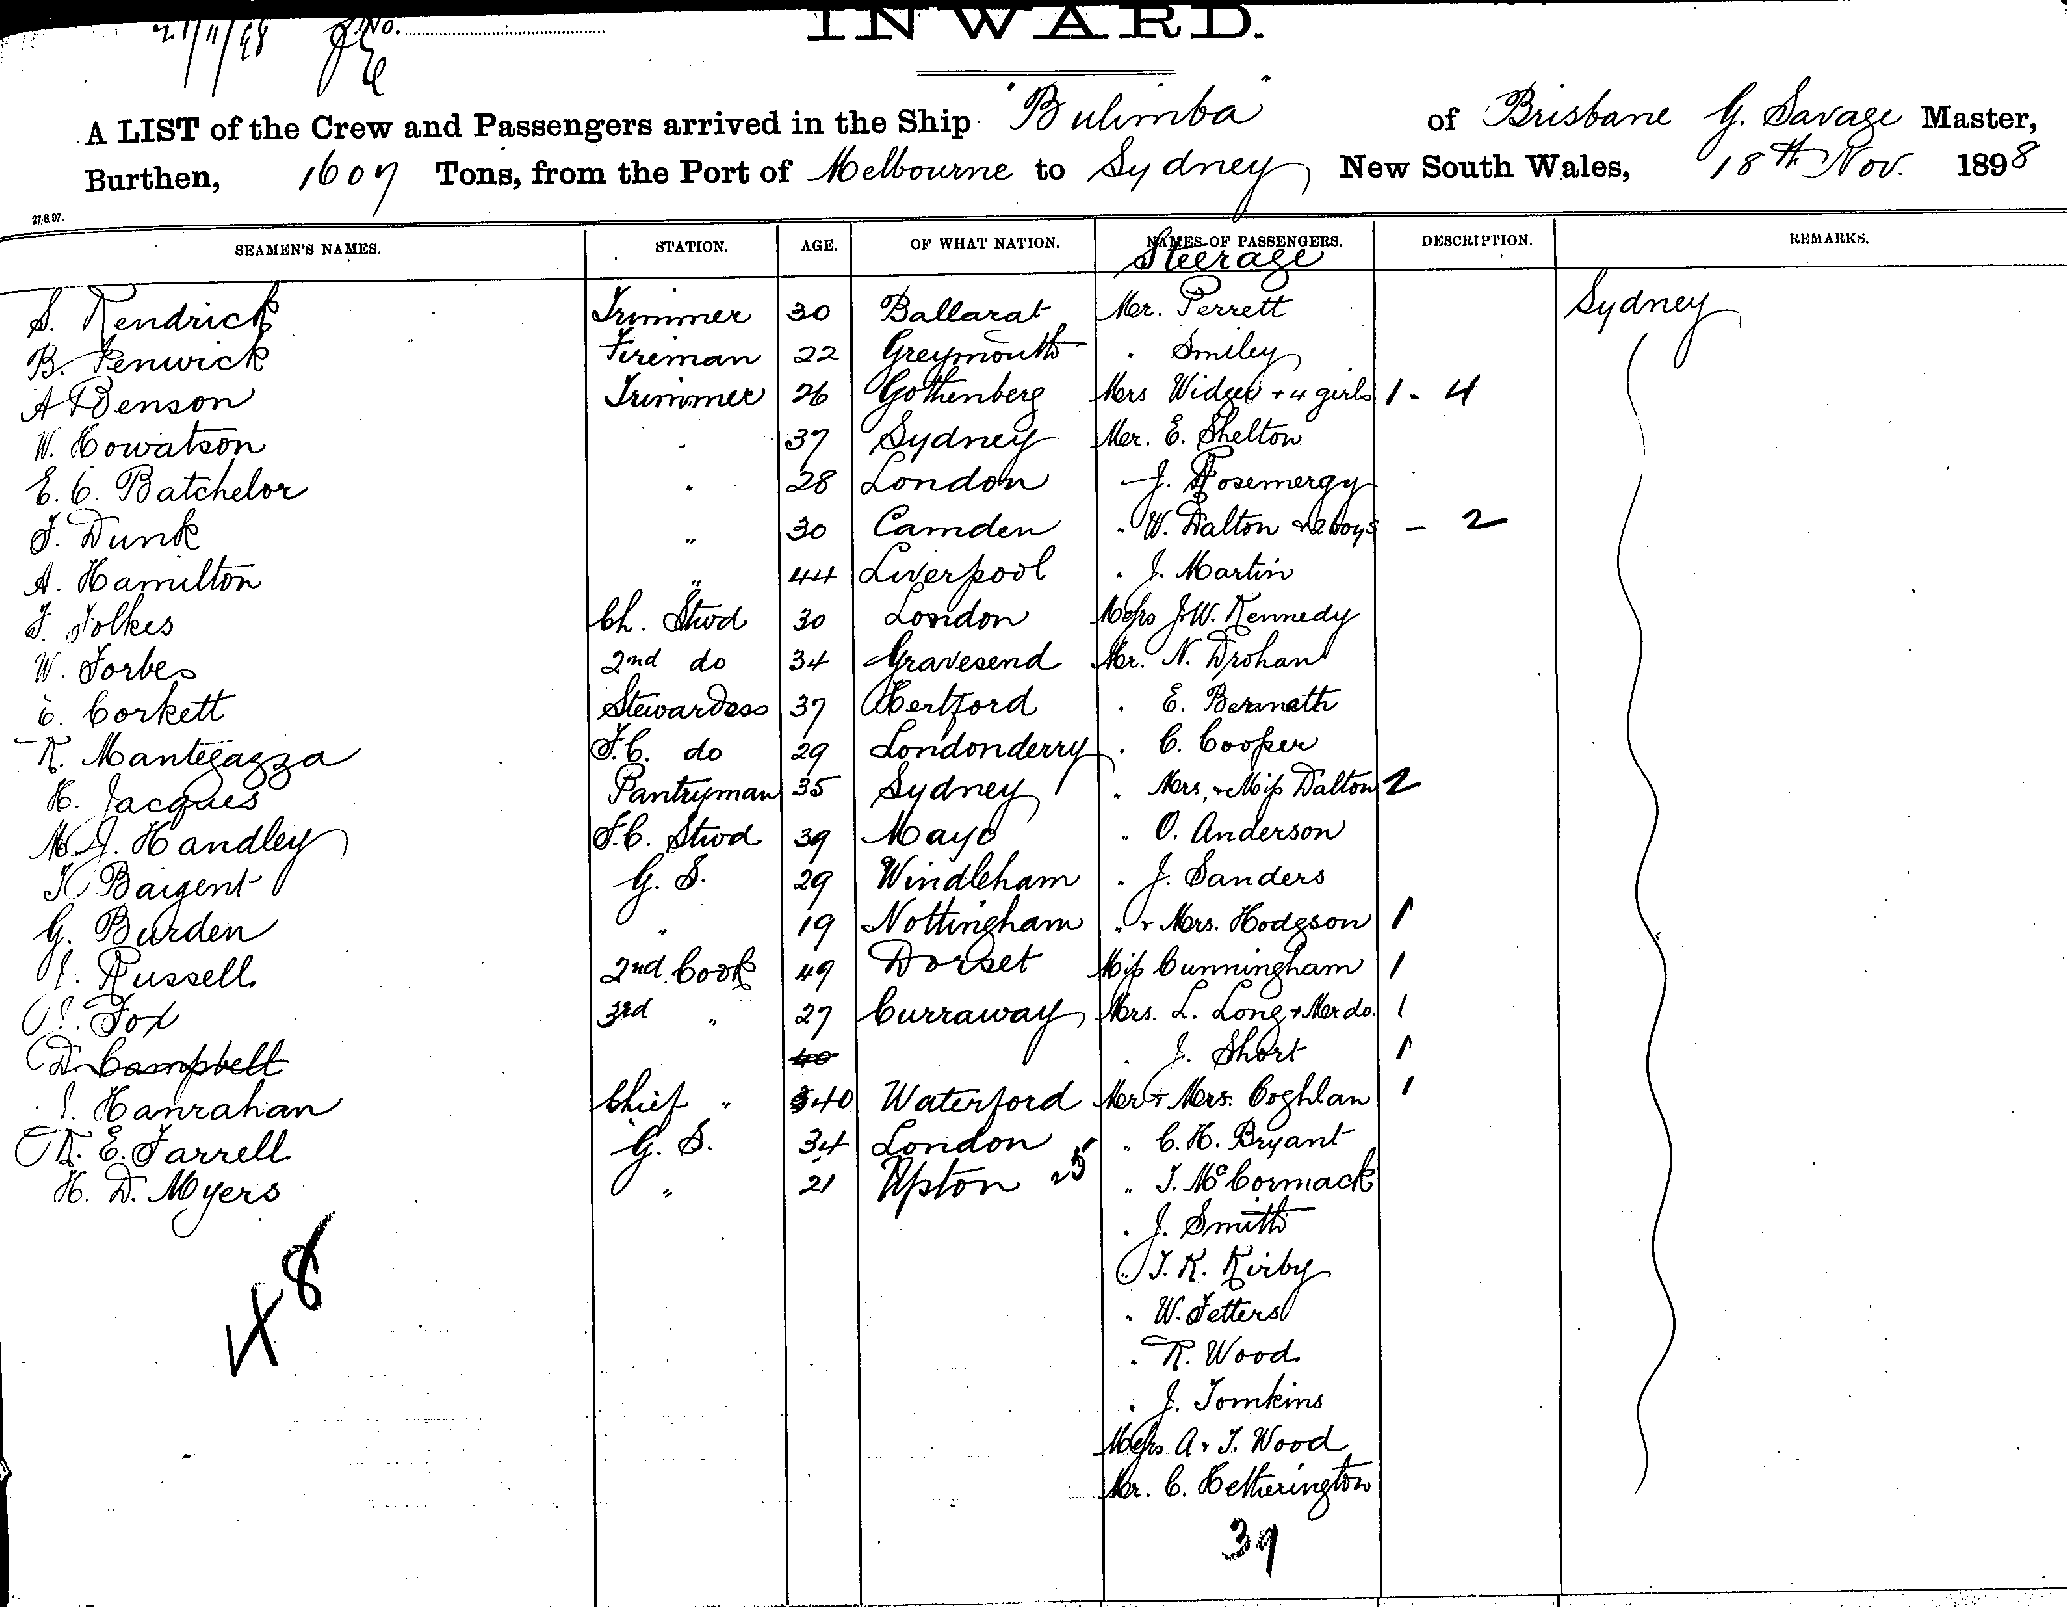 21/11/98 No.
INWARD.
A LIST of the Crew and Passengers arrived in the Ship "Bulimba" of Brisbane G. Savage Master,
Burthen, 1607 Tons, from the Port of Melbourne to Sydney, New South Wales, 18th Nov. 1898
27.8.97.
SEAMEN'S NAMES. STATION. AGE. OF WHAT NATION. NAMES OF PASSENGERS. DESCRIPTION. REMARKS.
Steerage
S. Kendrick Trimmer 30 Ballarat Mr. Perrett Sydney
B. Fenwick Fireman 22 Greymouth " Smiley
A Benson Trimmer 26 Gothenberg Mrs Widger + 4 girls 1 - 4
W. Howatson " 37 Sydney Mr. E. Shelton
E. C. Batchelor " 28 London J. Rosemergy
F. Dunk " 30 Camden " W. Dalton + 2 boys - 2
A. Hamilton " 44 Liverpool " J. Martin
F. Folkes Ch. Stwd 30 London Messrs J.W. Kennedy
W. Forbes 2nd do 34 Gravesend Mr. N. Drohan
E. Corkett Stewardess 37 Hertford " E. Bermath
R. Mantegazza F.C. do 29 Londonderry " C. Cooper
H. Jacques Pantryman 35 Sydney " Mrs, + Miss Dalton 2
M. J. Handley F.C. Stwd 39 Mayo " O. Anderson
Baigent G. S. 29 Windleham " J. Sanders
G. Burden " 19 Nottingham " + Mrs. Hodgson 1
J. Russell 2nd Cook 49 Dorset Miss Cunningham 1
J. Fox 3rd " 27 Curraway Mrs. L. Long + Mr do. 1
D. Campbell 40 " J. Short 1
J. Hanrahan Chief " 40 Waterford Mr + Mrs. Coghlan 1
R. E. Farrell G. S. 34 London " C. H. Bryant
H. D. Myers " 21 Upton 25 " T. McCormack
" J. Smith
" T. K. Kirby
" W. Fetters
" R. Wood
" J. Tomkins
Messrs A + T. Wood
Mr. C. Hetherington
48
39